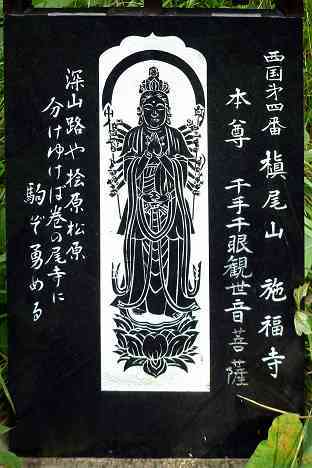 西国第四番 槇尾山 施福寺
本尊 千手千眼観世音菩薩
深山路や桧原松原
分けゆけば巻の尾寺に
駒ぞ勇める